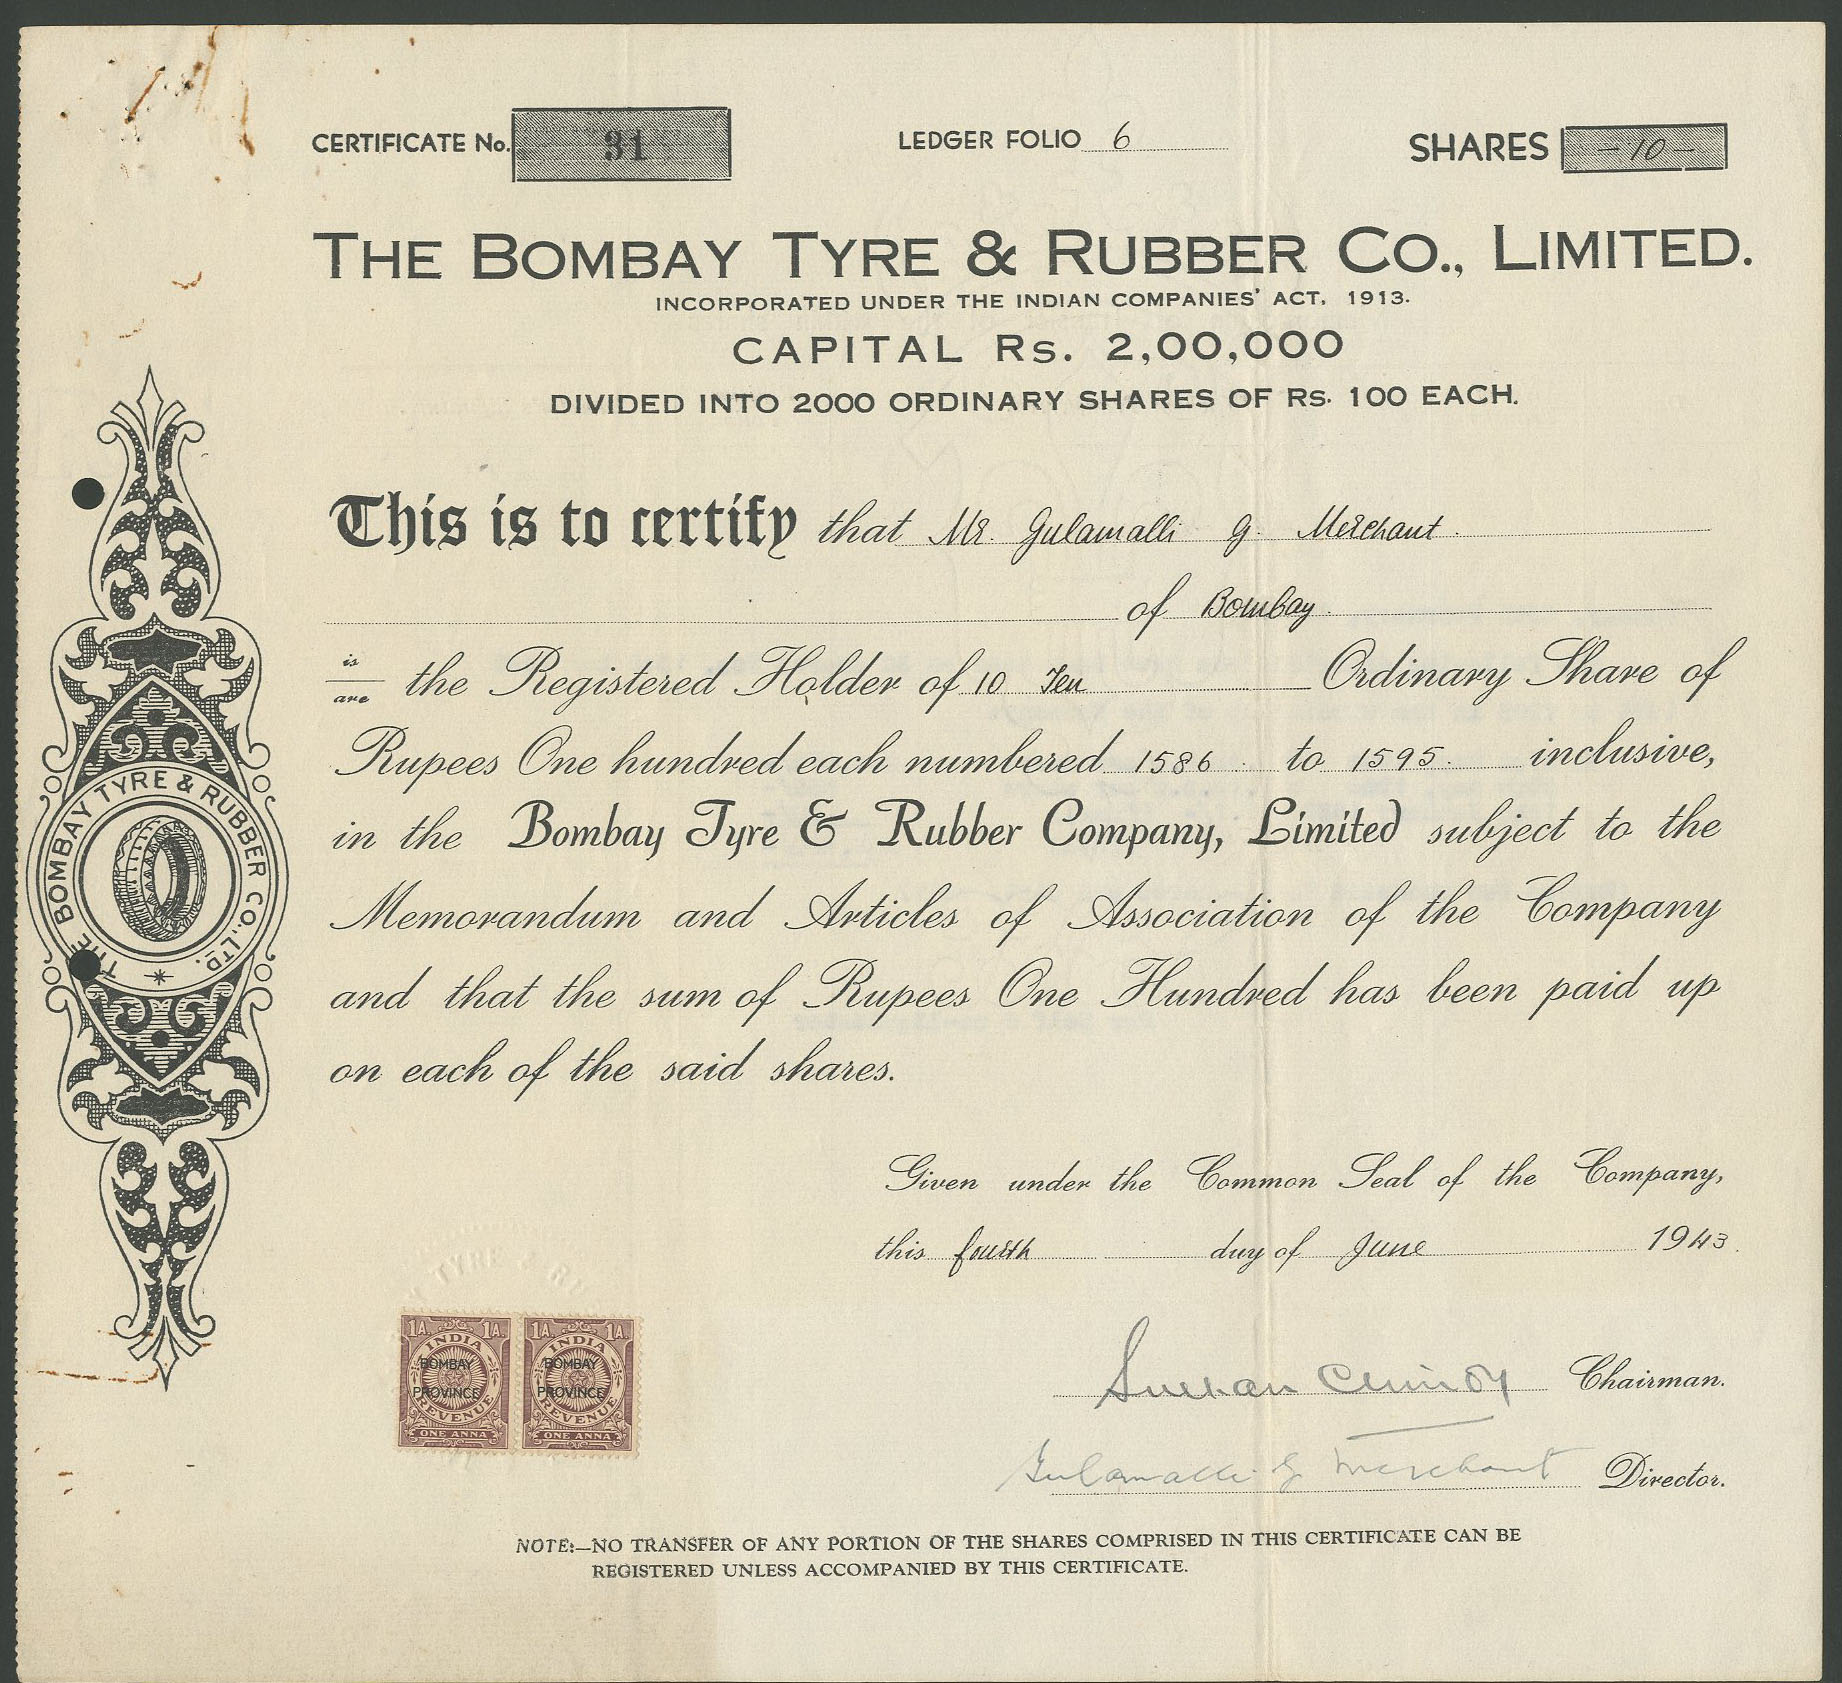 CERTIFICATE No. 31 LEDGER FOLIO 6 SHARES -10-
THE BOMBAY TYRE & RUBBER CO., LIMITED.
INCORPORATED UNDER THE INDIAN COMPANIES' ACT, 1913.
CAPITAL Rs. 2,00,000
DIVIDED INTO 2000 ORDINARY SHARES OF Rs. 100 EACH.
This is to certify that Mr. Gulamalli G. Merchant.
of Bombay.
is
are the Registered Holder of 10 Ten Ordinary Share of
Rupees One hundred each numbered 1586 to 1595. inclusive,
in the Bombay Tyre & Rubber Company, Limited subject to the
Memorandum and Articles of Association of the Company
and that the sum of Rupees One Hundred has been paid up
on each of the said shares.
THE BOMBAY TYRE & RUBBER CO., LTD.
Given under the Common Seal of the Company,
this fourth day of June 1943.
TYRE & RU
1A. 1A. 1A. 1A.
INDIA INDIA
BOMBAY BOMBAY
PROVINCE PROVINCE
REVENUE REVENUE
ONE ANNA ONE ANNA
Chinoy Chairman.
Gulamalli G Merchant Director.
NOTE:—NO TRANSFER OF ANY PORTION OF THE SHARES COMPRISED IN THIS CERTIFICATE CAN BE
REGISTERED UNLESS ACCOMPANIED BY THIS CERTIFICATE.